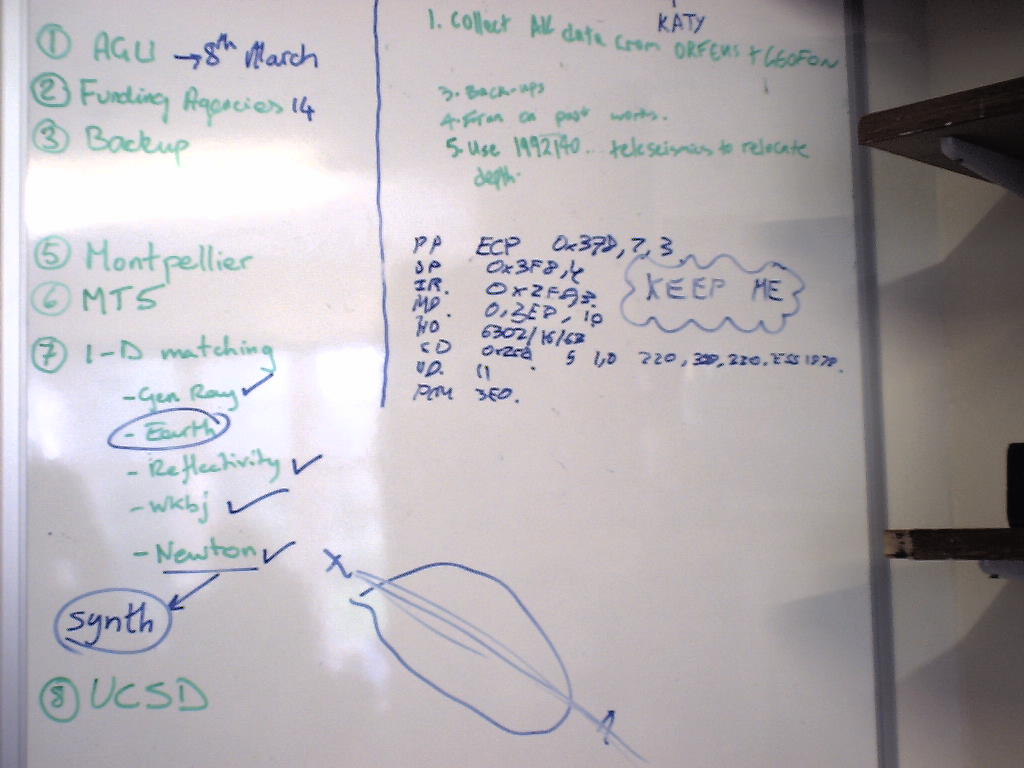 ① AGU → 8th March
② Funding Agencies 14
③ Backup
⑤ Montpellier
⑥ MT5
⑦ 1-D matching
- Gen Ray ✓
- Earth
- Reflectivity ✓
- wkbj ✓
- Newton ✓
synth
⑧ UCSD
KATY
1. Collect All data from ORFEUS + GEOFON
3. Back-ups
4. on past works.
5. Use 1992/90... teleseisms to relocate
depth.
PP ECP 0x37D, 7, 3
0x3F8, 4
IR. 0x2F8, 3
KEEP ME
10
6302/
CD 5 1,0 220,
11
3E0.
X